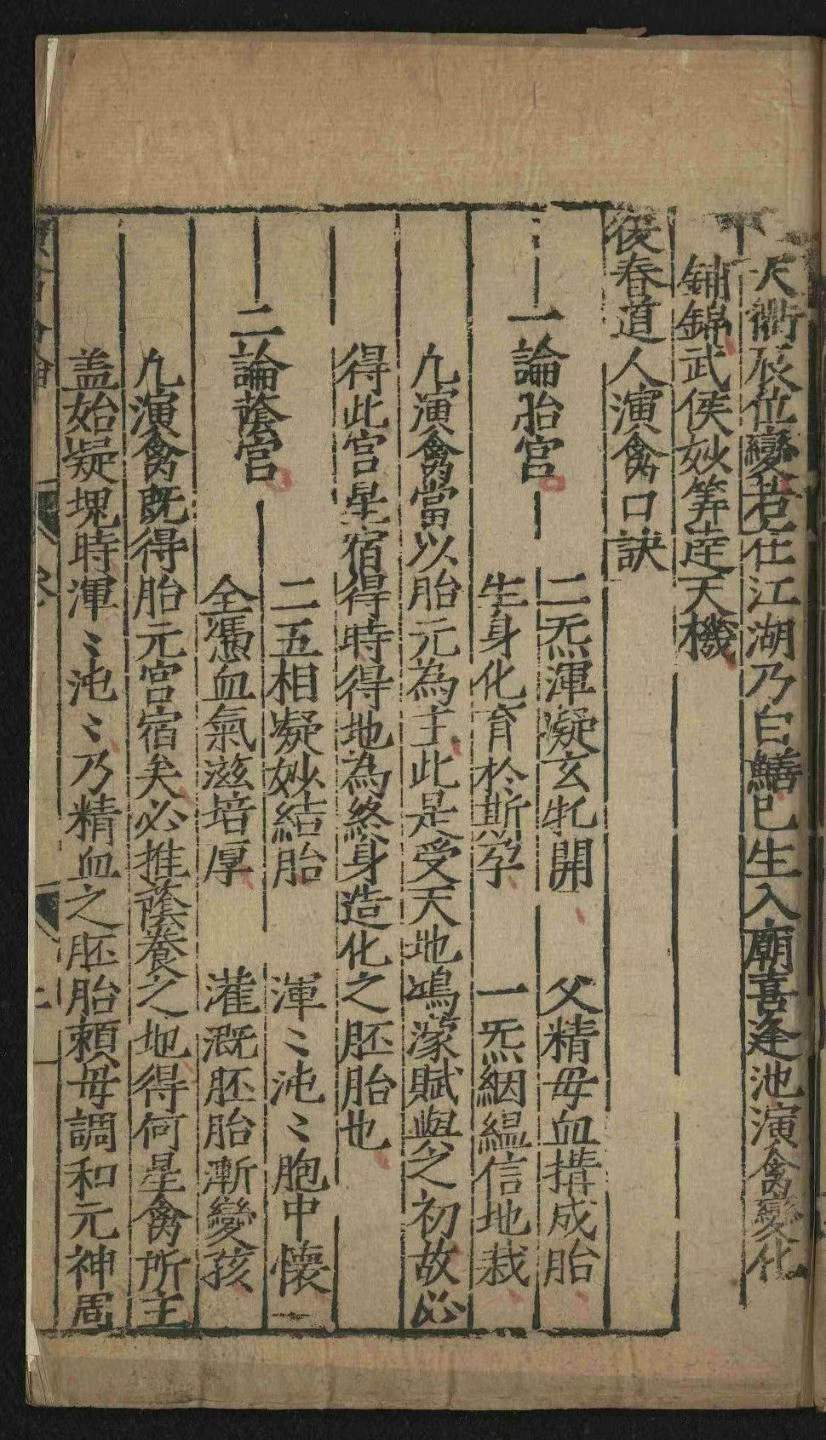 天衢辰位變君在江湖乃白鱔巳生入廟喜逢池演禽變化
鋪錦武侯妙筭達天機
後春道人演禽口訣
二炁渾凝玄牝開 父精母血搆成胎
一論胎宮
生身化育於斯孕 一炁絪縕信地栽
凢演禽當以胎元為主此是受天地鳴濛賦與之初故必
得此宮星宿得時得地為終身造化之胚胎也
二五相凝妙結胎 渾〻沌〻胞中懷
二論蔭宮
全憑血氣滋培厚 灌溉胚胎漸變孩
凢演禽既得胎元宮宿矣必推蔭養之地得何星禽所主
盖始凝塊時渾〻沌〻乃精血之胚胎頼母調和元神周